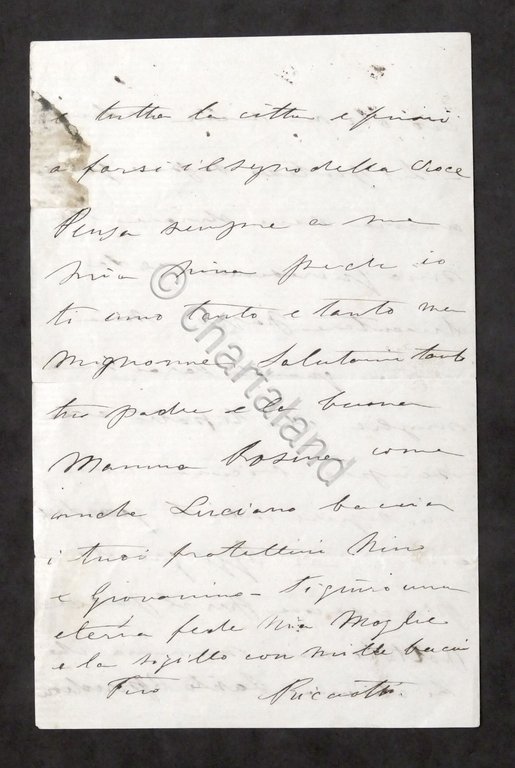 tutta la citta e
a farsi il segno della croce
Pensa sempre a me
mia Nina perche io
ti amo tanto e tanto ma
mignonne. Salutami tanto
tuo padre e la buona
Mamma Rosina come
anche Luciano bacia
i tuoi fratellini Nino
e Giovannino - Ti giuro una
eterna fede mia Moglie
e la sigillo con mille baci
Tuo Ricciotti.
© chartaland